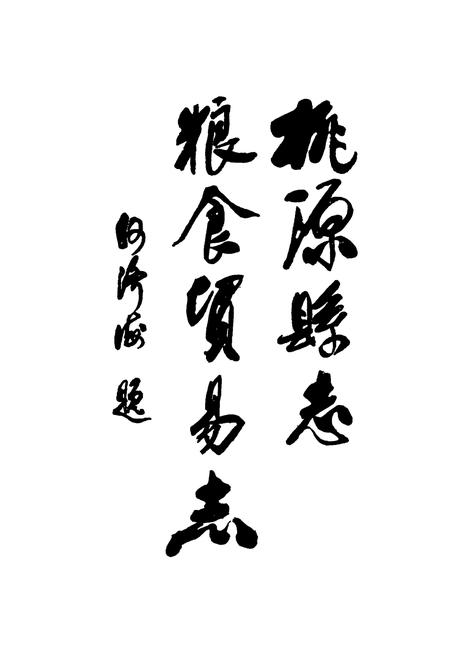 桃源縣志
粮食貿易志
何济海 题